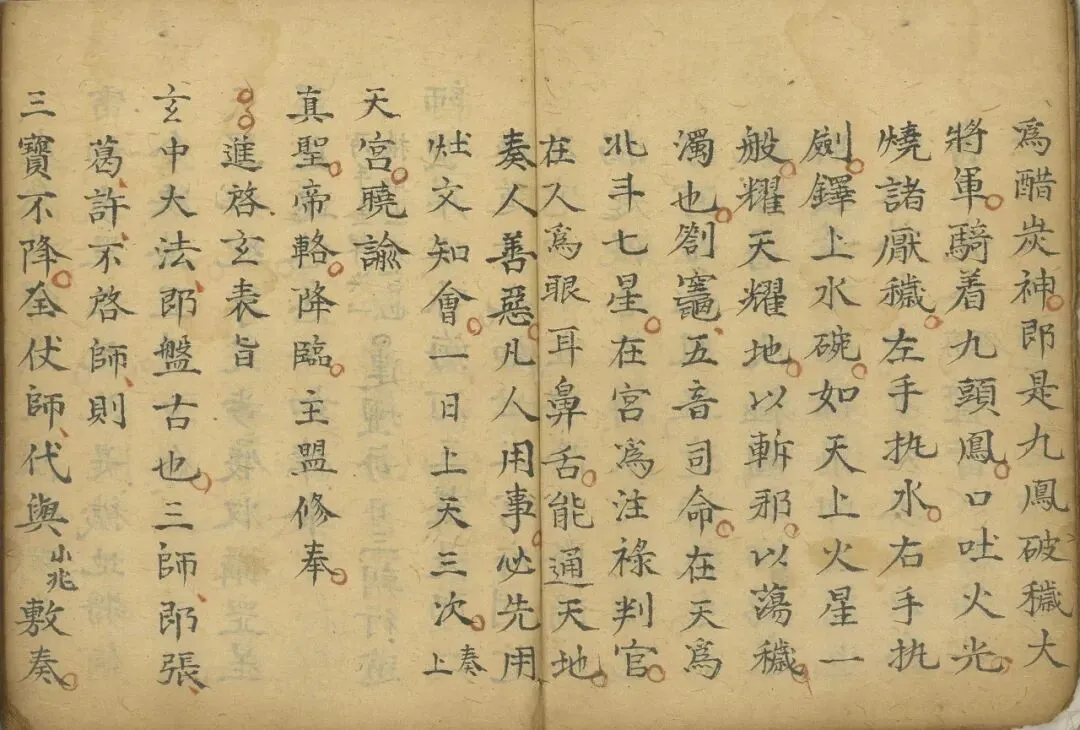 為醋炭神。即是九鳳破穢大
將軍。騎着九頭鳳。口吐火光
燒諸厭穢。左手执水。右手执
劍。鐸上水碗。如天上火星一
般。耀天耀地。以斬邪。以蕩穢。
濁也。劄竈、五音司命。在天為
北斗七星。在宮為注祿判官。
在人為眼耳鼻舌。能通天地。
奏人善惡。凡人用事。必先用
灶文知會。一日上天三次。上奏
天宮。曉諭
真聖。帝輅。降臨。主盟修奉。
進啓玄表旨
玄中大法、即盤古也。三師、即張、
葛、許、不啓師、則
三寶不降。全仗師、代與小兆敷奏。